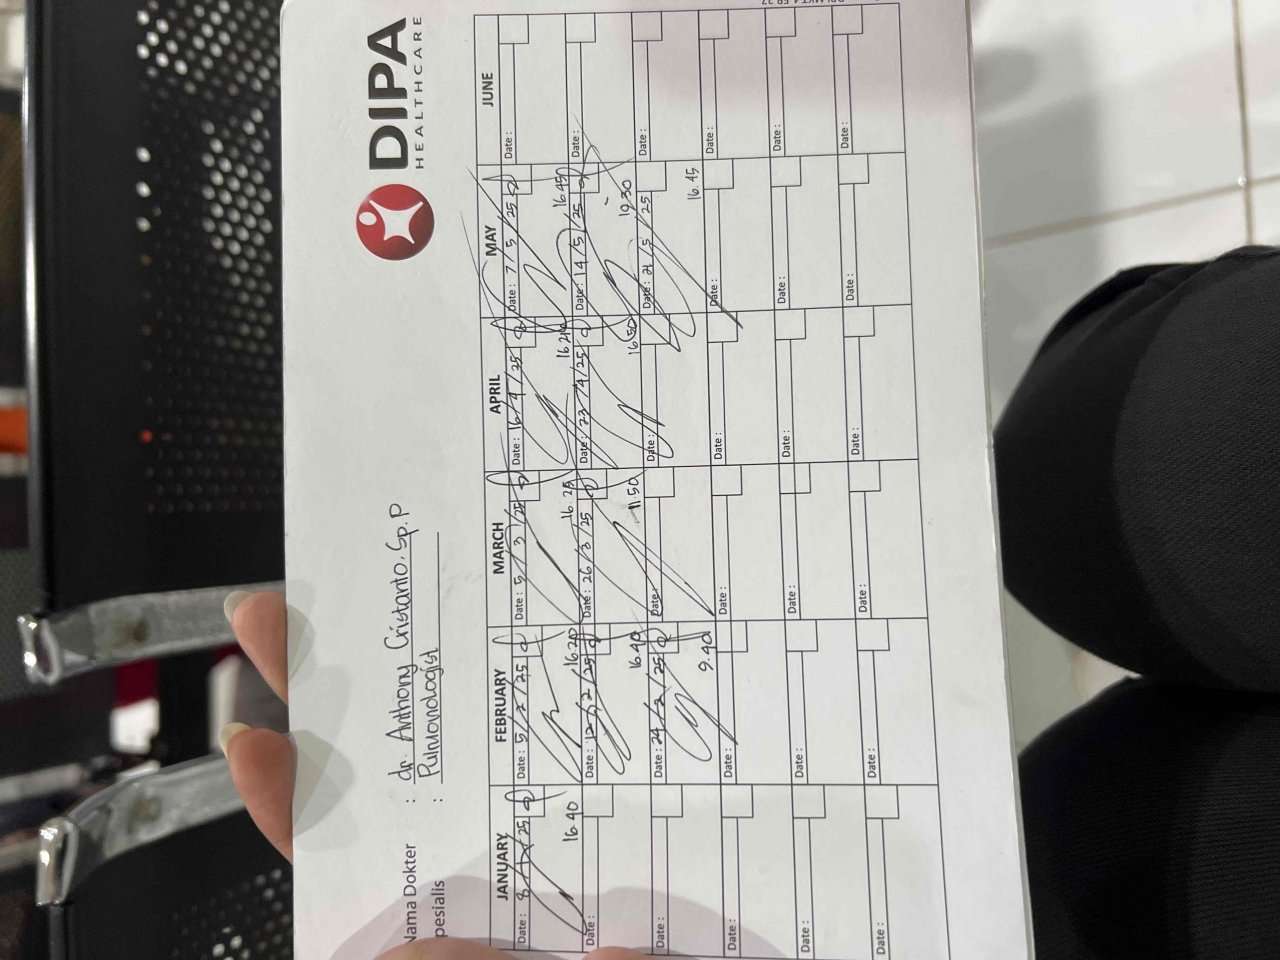 DIPA
HEALTHCARE
Nama Dokter : dr. Anthony Cristanto, Sp.P
pesialis : Pulmonologist
JANUARY FEBRUARY MARCH APRIL MAY JUNE
Date: 8/1/25 Date: 5/2/25 Date: 5/3/25 Date: 16/4/25 Date: 7/5/25 Date:
16.40 16.20 16.25 16.20 16.45
Date: Date: 12/2/25 Date: 26/3/25 Date: 23/4/25 Date: 14/5/25 Date:
16.40 11.50 16.50 19.30
Date: Date: 24/2/25 Date: Date: Date: 21/5/25 Date:
9.40 16.45
Date: Date: Date: Date: Date: Date:
Date: Date: Date: Date: Date: Date:
Date: Date: Date: Date: Date: Date: